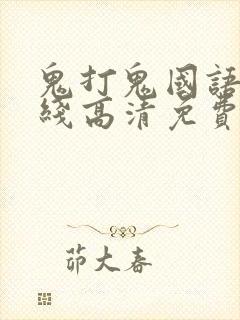 鬼打鬼國語
綫高清免費
茆大春